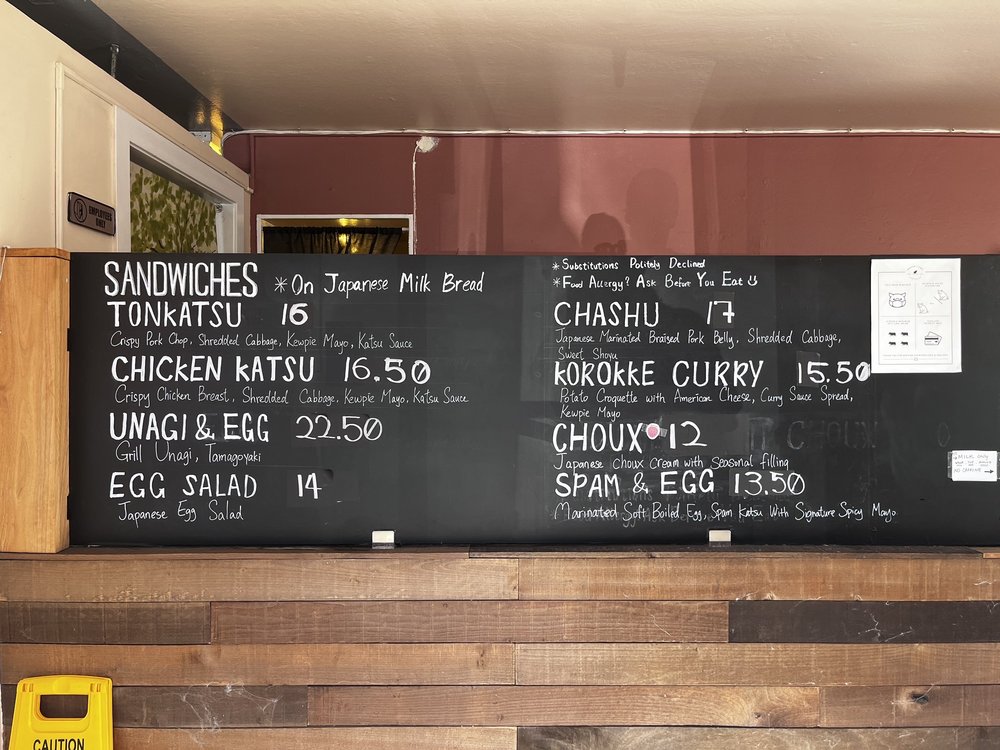 EMPLOYEES
ONLY
SANDWICHES *On Japanese Milk Bread
TONKATSU 16
Crispy Pork Chop, Shredded Cabbage, Kewpie Mayo, Katsu Sauce
CHICKEN KATSU 16.50
Crispy Chicken Breast, Shredded Cabbage, Kewpie Mayo, Katsu Sauce
UNAGI & EGG 22.50
Grill Unagi, Tamagoyaki
EGG SALAD 14
Japanese Egg Salad
*Substitutions Politely Declined
*Food Allergy? Ask Before You Eat
CHASHU 17
Japanese Marinated Braised Pork Belly, Shredded Cabbage,
Sweet Shoyu
KOROKKE CURRY 15.50
Potato Croquette with American Cheese, Curry Sauce Spread,
Kewpie Mayo
CHOUX 12
Japanese choux cream with seasonal filling
SPAM & EGG 13.50
Marinated Soft Boiled Egg, Spam Katsu With Signature Spicy Mayo
MILK ONLY
CAUTION